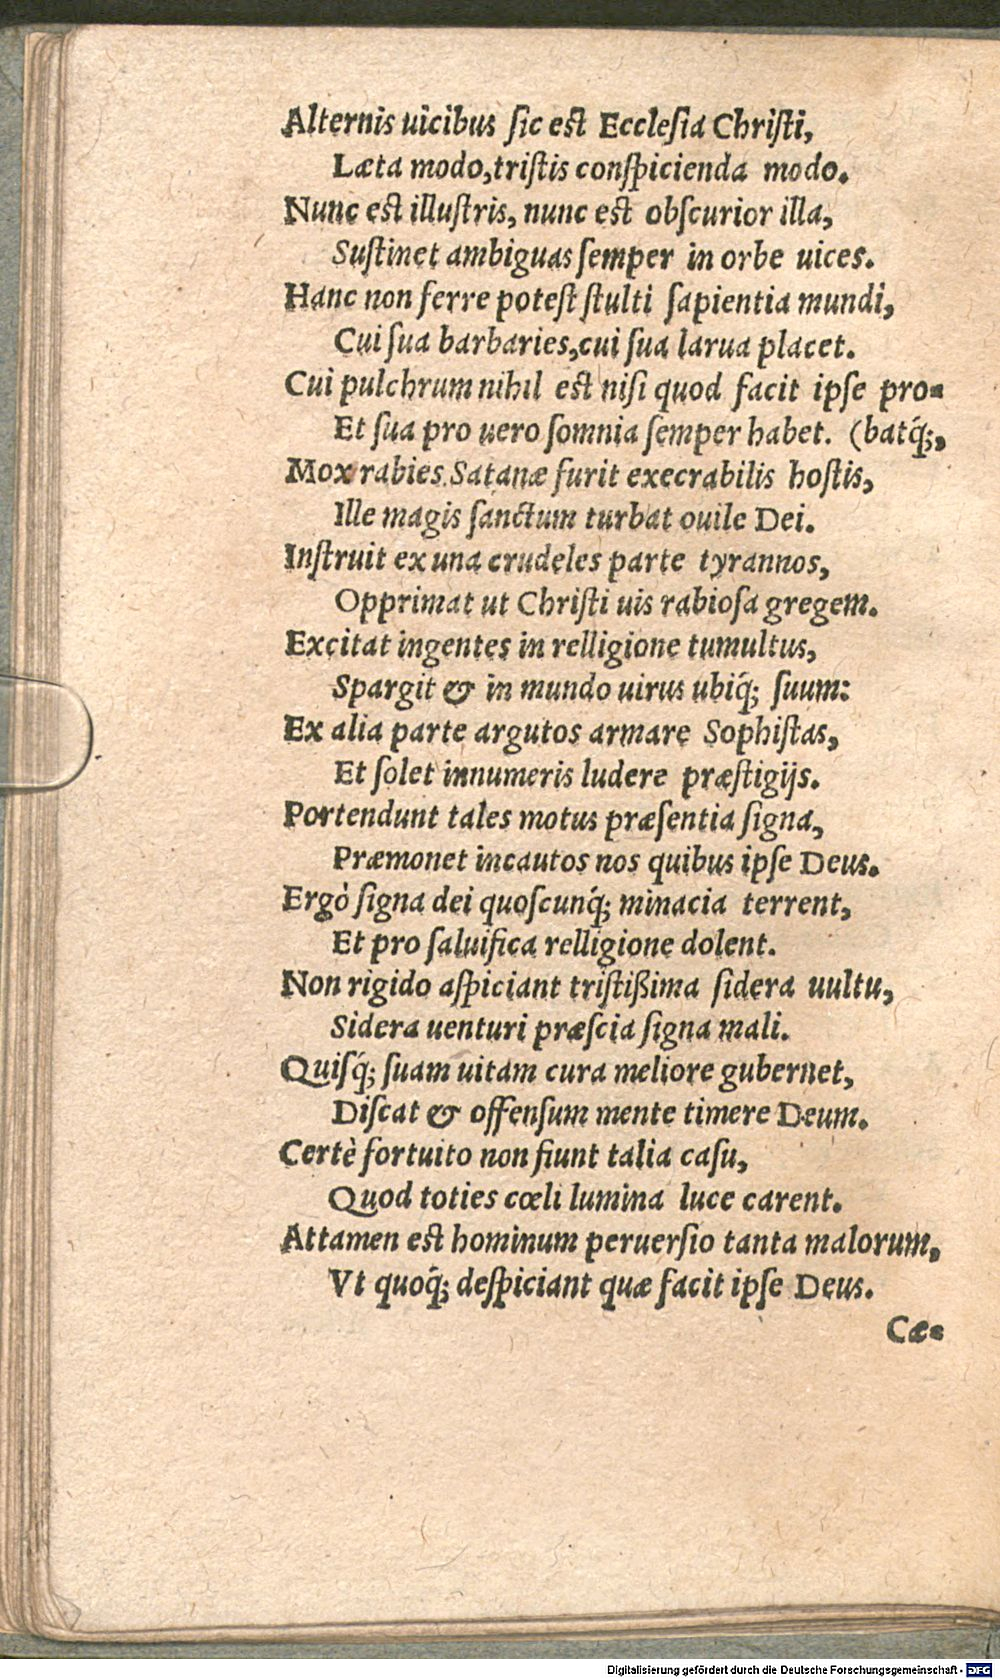 Alternis uicibus ſic est Eccleſia Chriſti,
Læta modo, triſtis conſpicienda modo.
Nunc est illuſtris, nunc est obſcurior illa,
Suſtinet ambiguas ſemper in orbe uices.
Hanc non ferre poteſt ſtulti ſapientia mundi,
Cui ſua barbaries, cui ſua larua placet.
Cui pulchrum nihil est niſi quod facit ipſe pro-
Et ſua pro uero ſomnia ſemper habet. (batq́;,
Mox rabies Satanæ furit execrabilis hoſtis,
Ille magis ſanctum turbat ouile Dei.
Inſtruit ex una crudeles parte tyrannos,
Opprimat ut Chriſti uis rabioſa gregem.
Excitat ingentes in relligione tumultus,
Spargit & in mundo uirus ubiq́; ſuum:
Ex alia parte argutos armare Sophiſtas,
Et ſolet innumeris ludere præſtigijs.
Portendunt tales motus præſentia ſigna,
Præmonet incautos nos quibus ipſe Deus.
Ergò ſigna dei quoſcunq́; minacia terrent,
Et pro ſaluifica relligione dolent.
Non rigido aſpiciant triſtißima ſidera uultu,
Sidera uenturi præſcia ſigna mali.
Quiſq́; ſuam uitam cura meliore gubernet,
Diſcat & offenſum mente timere Deum.
Certè fortuito non fiunt talia caſu,
Quod toties cœli lumina luce carent.
Attamen est hominum peruerſio tanta malorum,
Vt quoq́; deſpiciant quæ facit ipſe Deus.
Cæ-
Digitalisierung gefördert durch die Deutsche Forschungsgemeinschaft - DFG